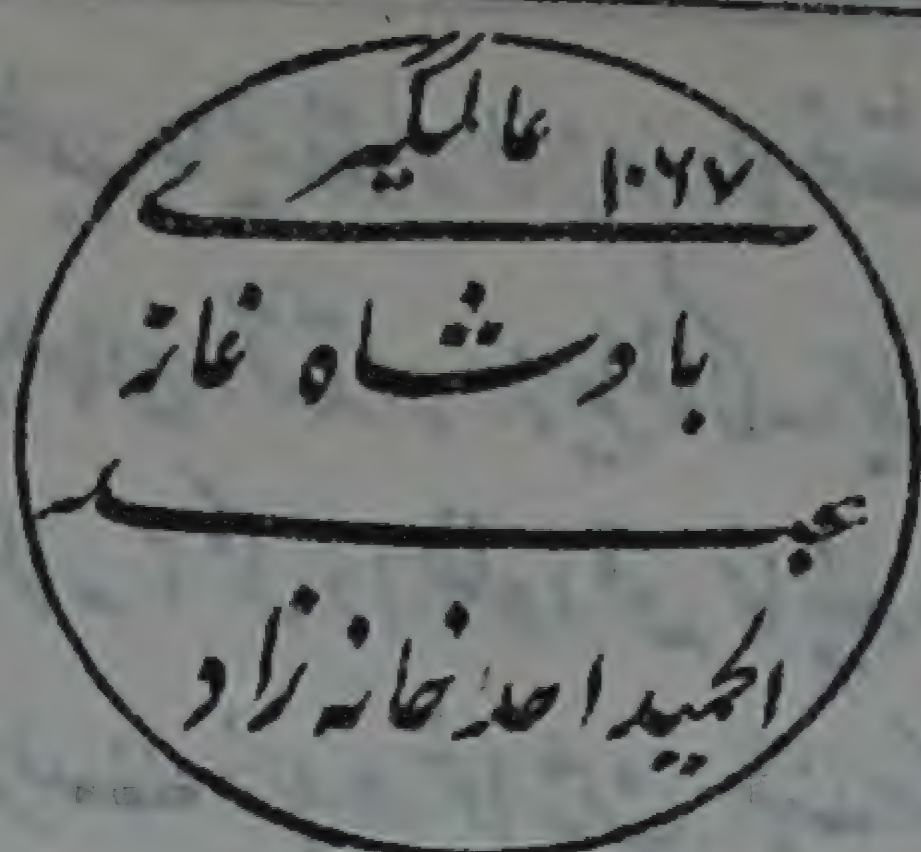 عالمگیر ۱۰۶۷
ے
بادشاہ غاز
عبد
الحمید احد خانہ زاد